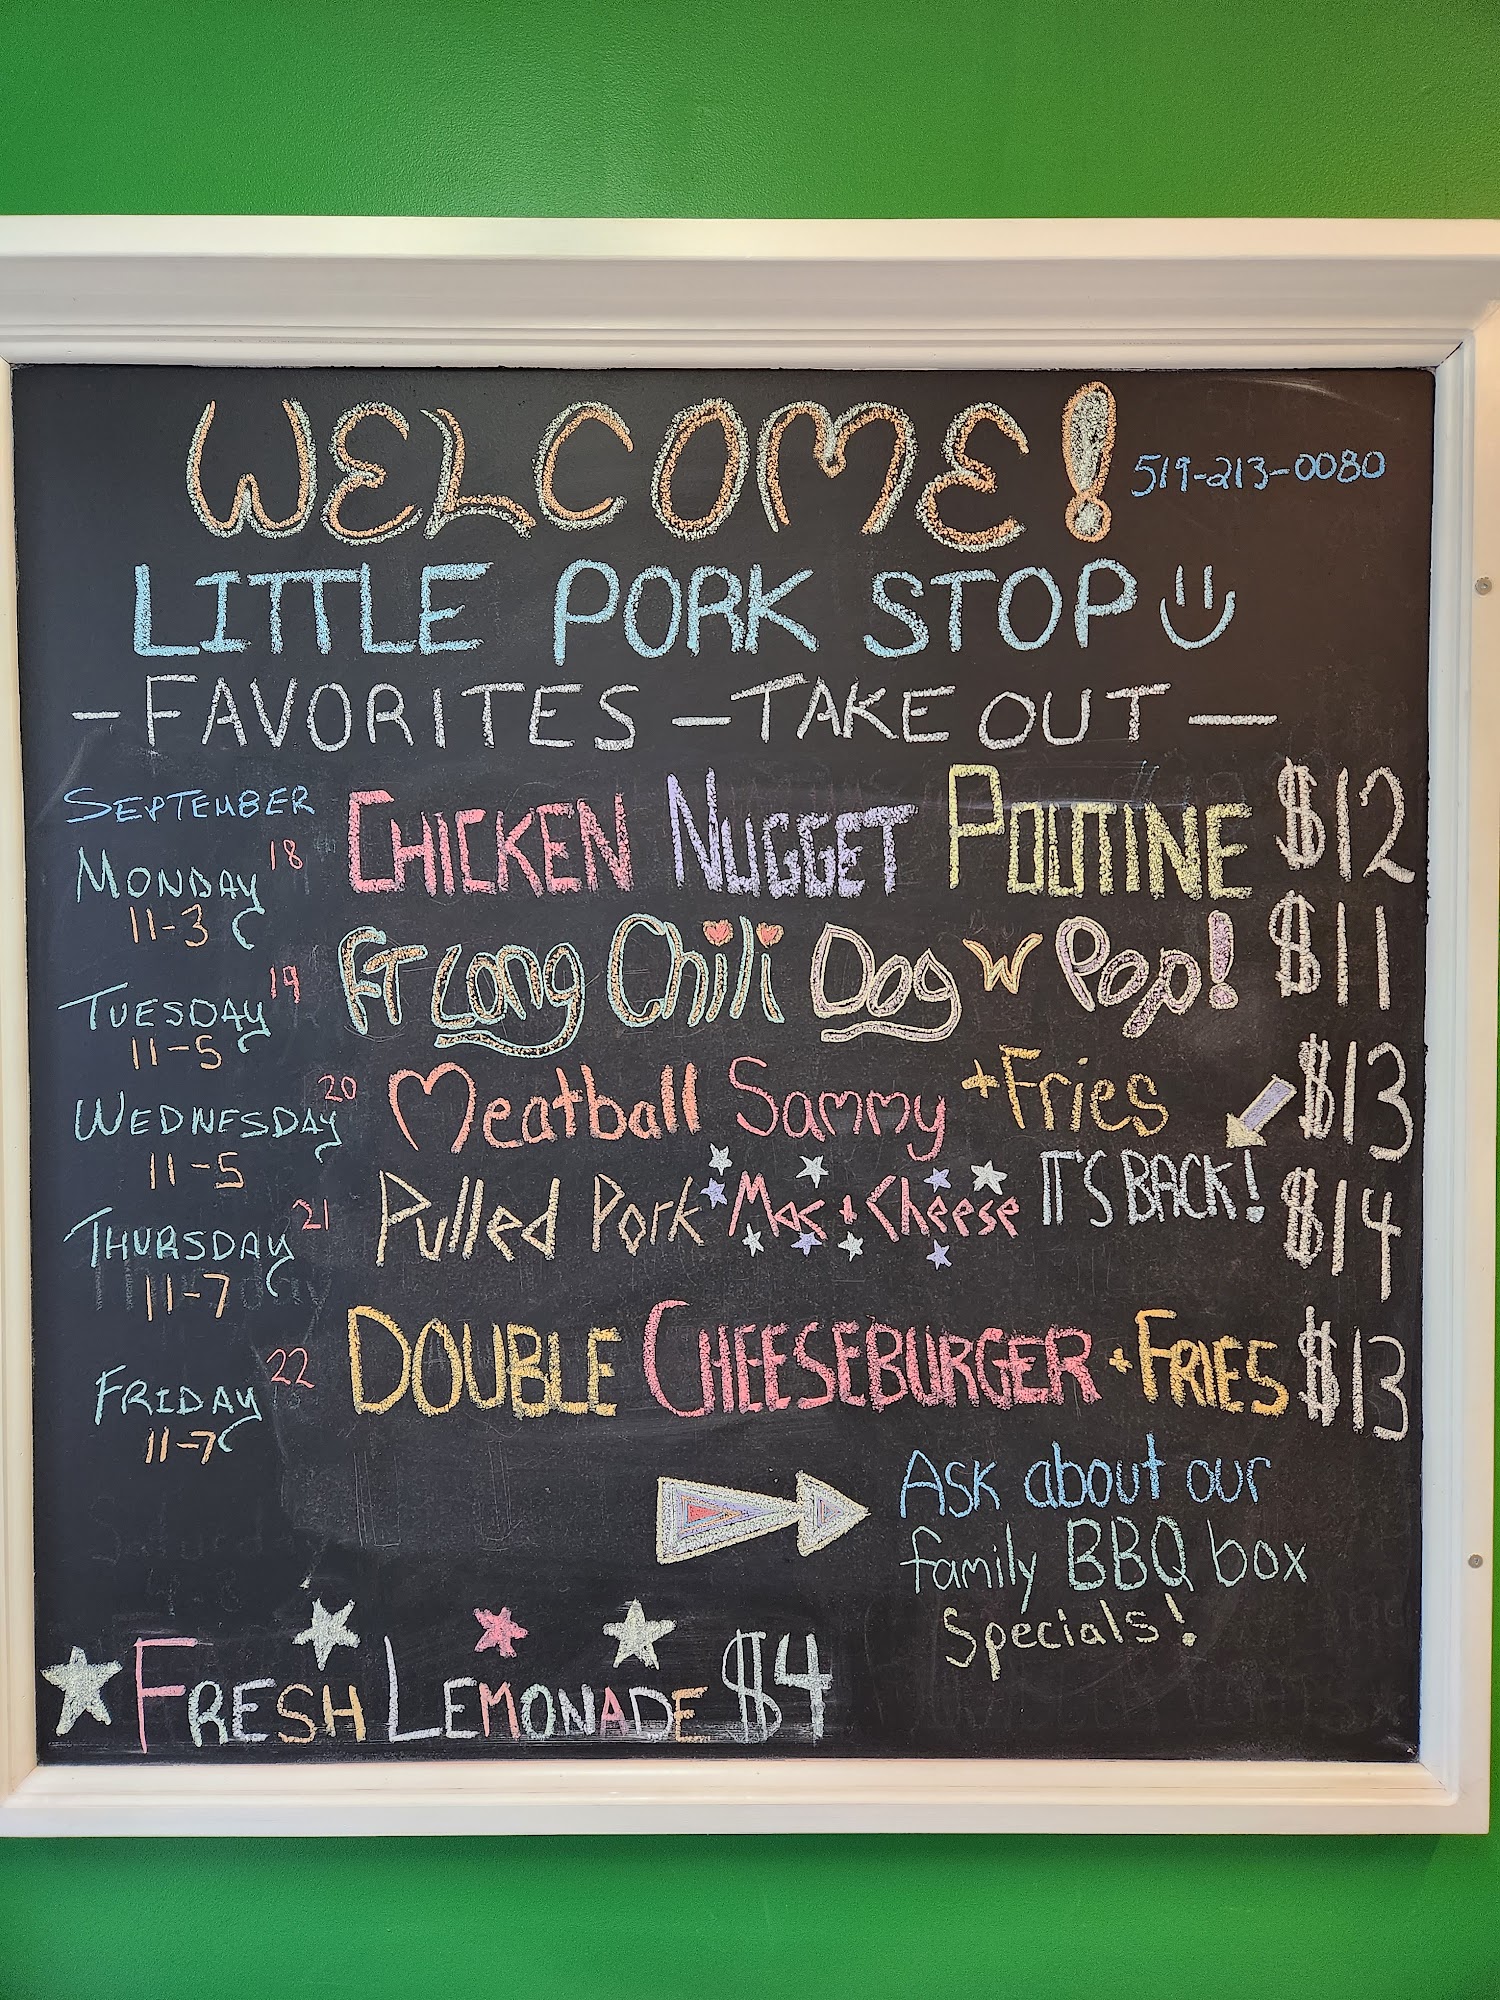 WELCOME! 519-213-0080
LITTLE PORK STOP
- FAVORITES - TAKE OUT -
SEPTEMBER
MONDAY 18 CHICKEN NUGGET POUTINE $12
11-3
TUESDAY 19 FT LONG Chili Dog W Pop! $11
11-5
WEDNESDAY 20 Meatball Sammy + Fries $13
11-5
THURSDAY 21 Pulled Pork Mac + Cheese IT'S BACK! $14
11-7
FRIDAY 22 DOUBLE CHEESEBURGER + FRIES $13
11-7
ASK about our
family BBQ box
Specials!
FRESH LEMONADE $4